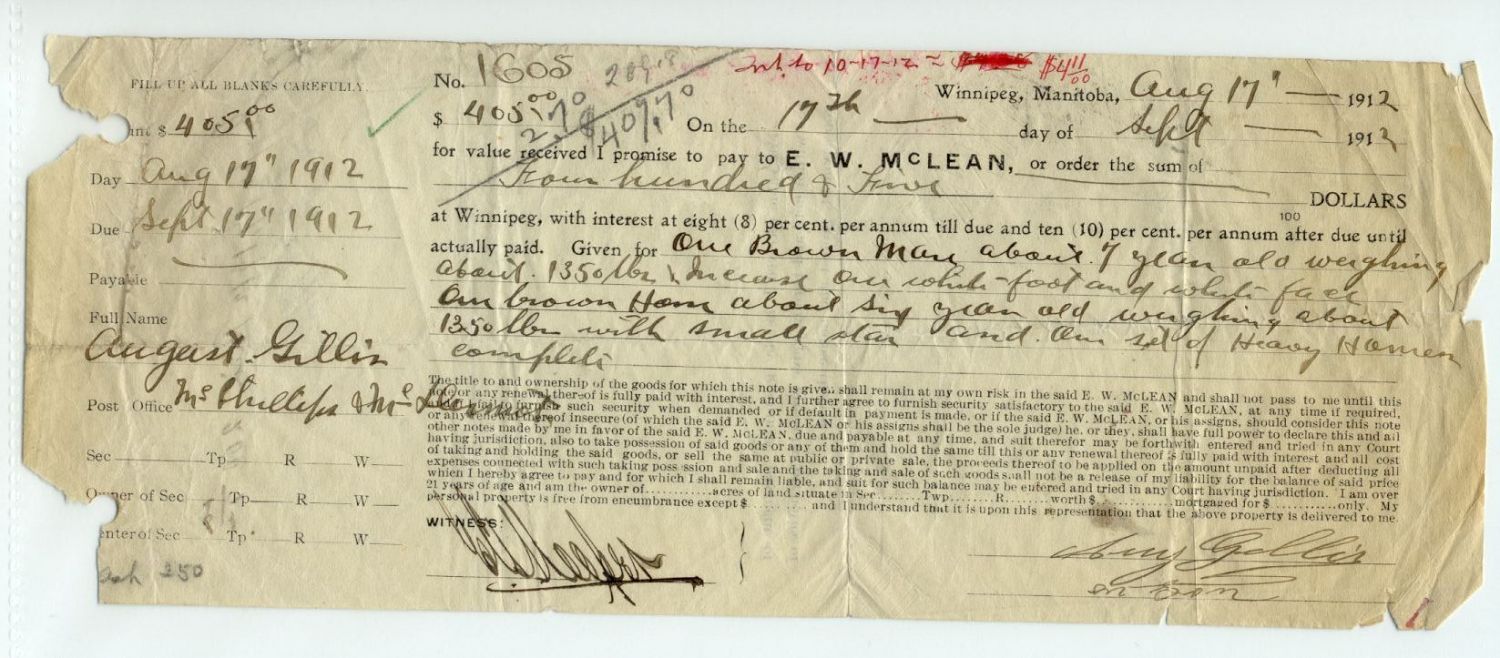 FILL UP ALL BLANKS CAREFULLY
$ 405.00
Day Aug 17" 1912
Due Sept 17" 1912
Payable
Full Name
August Gillis
Post Office McPhillips & Mc
Sec Tp R W
Owner of Sec Tp R W
enter of Sec Tp R W
ash 250
No. 1605
Int to 10-17-12 = $4 11/00
Winnipeg, Manitoba, Aug 17" 1912
$ 405.00 2.70 $407.70 On the 17th day of Sept 1912
for value received I promise to pay to E. W. McLEAN, or order the sum of
Four hundred & Five DOLLARS
100
at Winnipeg, with interest at eight (8) per cent. per annum till due and ten (10) per cent. per annum after due until
actually paid. Given for One Brown Mare about 7 year old weighing
about 1350 lbs one white foot and white face
One brown Horse about six year old weighing about
1350 lbs with small star and One set of Heavy Harness
complete
The title to and ownership of the goods for which this note is given shall remain at my own risk in the said E. W. McLEAN and shall not pass to me until this
note or any renewal thereof is fully paid with interest, and I further agree to furnish security satisfactory to the said E. W. McLEAN, at any time if required,
fail to furnish such security when demanded or if default in payment is made, or if the said E. W. McLEAN, or his assigns, should consider this note
or any renewal thereof insecure (of which the said E. W. McLEAN or his assigns shall be the sole judge) he, or they, shall have full power to declare this and all
other notes made by me in favor of the said E. W. McLEAN, due and payable at any time, and suit therefor may be forthwith entered and tried in any Court
having jurisdiction, also to take possession of said goods or any of them and hold the same till this or any renewal thereof is fully paid with interest and all cost
of taking and holding the said goods, or sell the same at public or private sale, the proceeds thereof to be applied on the amount unpaid after deducting all
expenses connected with such taking possession and sale and the taking and sale of such goods shall not be a release of my liability for the balance of said price
which I hereby agree to pay and for which I shall remain liable, and suit for such balance may be entered and tried in any Court having jurisdiction. I am over
21 years of age and am the owner of..............acres of land situate in Sec..............Twp.......R........worth $..............mortgaged for $............only. My
personal property is free from encumbrance except $.......... and I understand that it is upon this representation that the above property is delivered to me.
WITNESS:
Aug Gillis